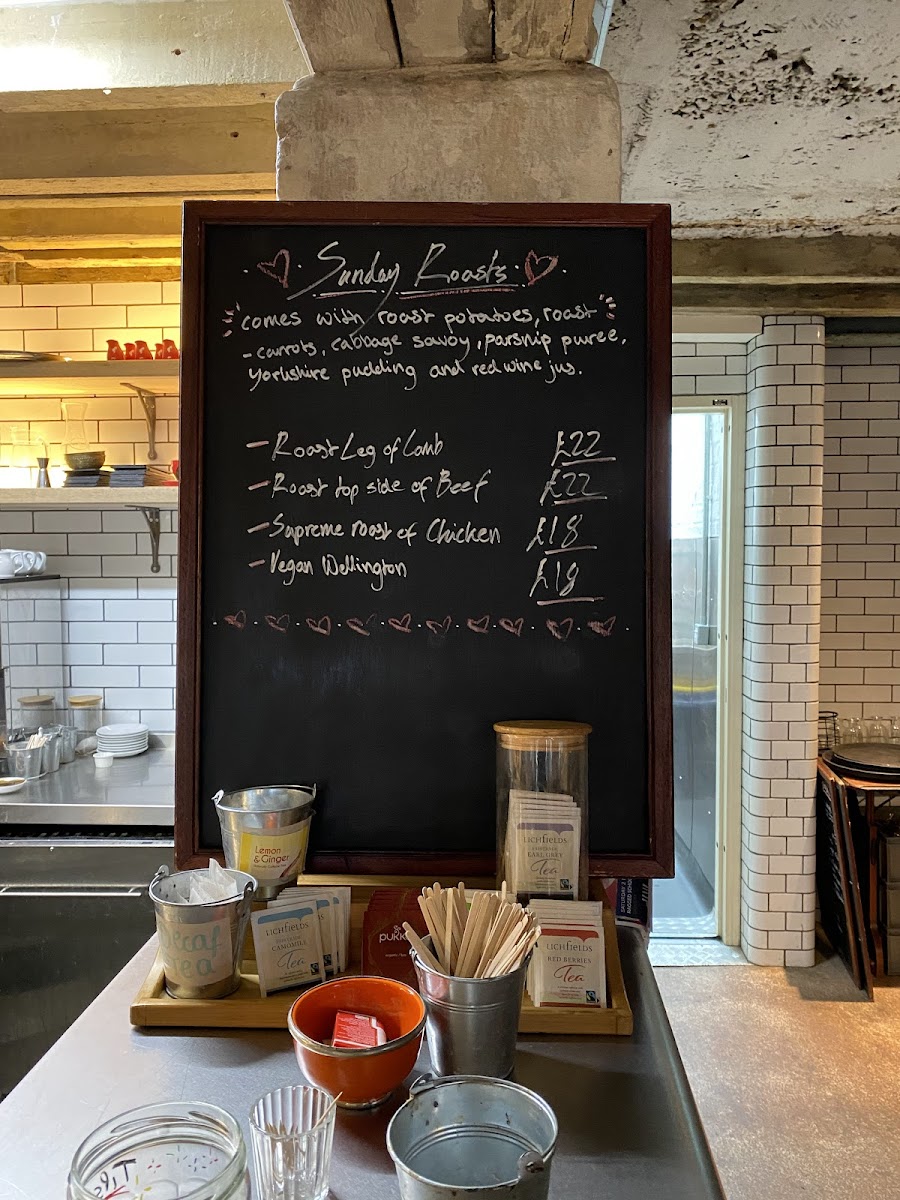 Sunday Roasts
comes with roast potatoes, roast
- carrots, cabbage savoy, parsnip puree,
Yorkshire pudding and red wine jus.
- Roast Leg of Lamb £22
- Roast top side of Beef £22
- Supreme roast of Chicken £18
- Vegan Wellington £18
Lemon
& Ginger
LICHFIELDS
EARL GREY
Tea
Decaf
Tea
LICHFIELDS
CAMOMILE
Tea
pukka
LICHFIELDS
RED BERRIES
Tea
Tips